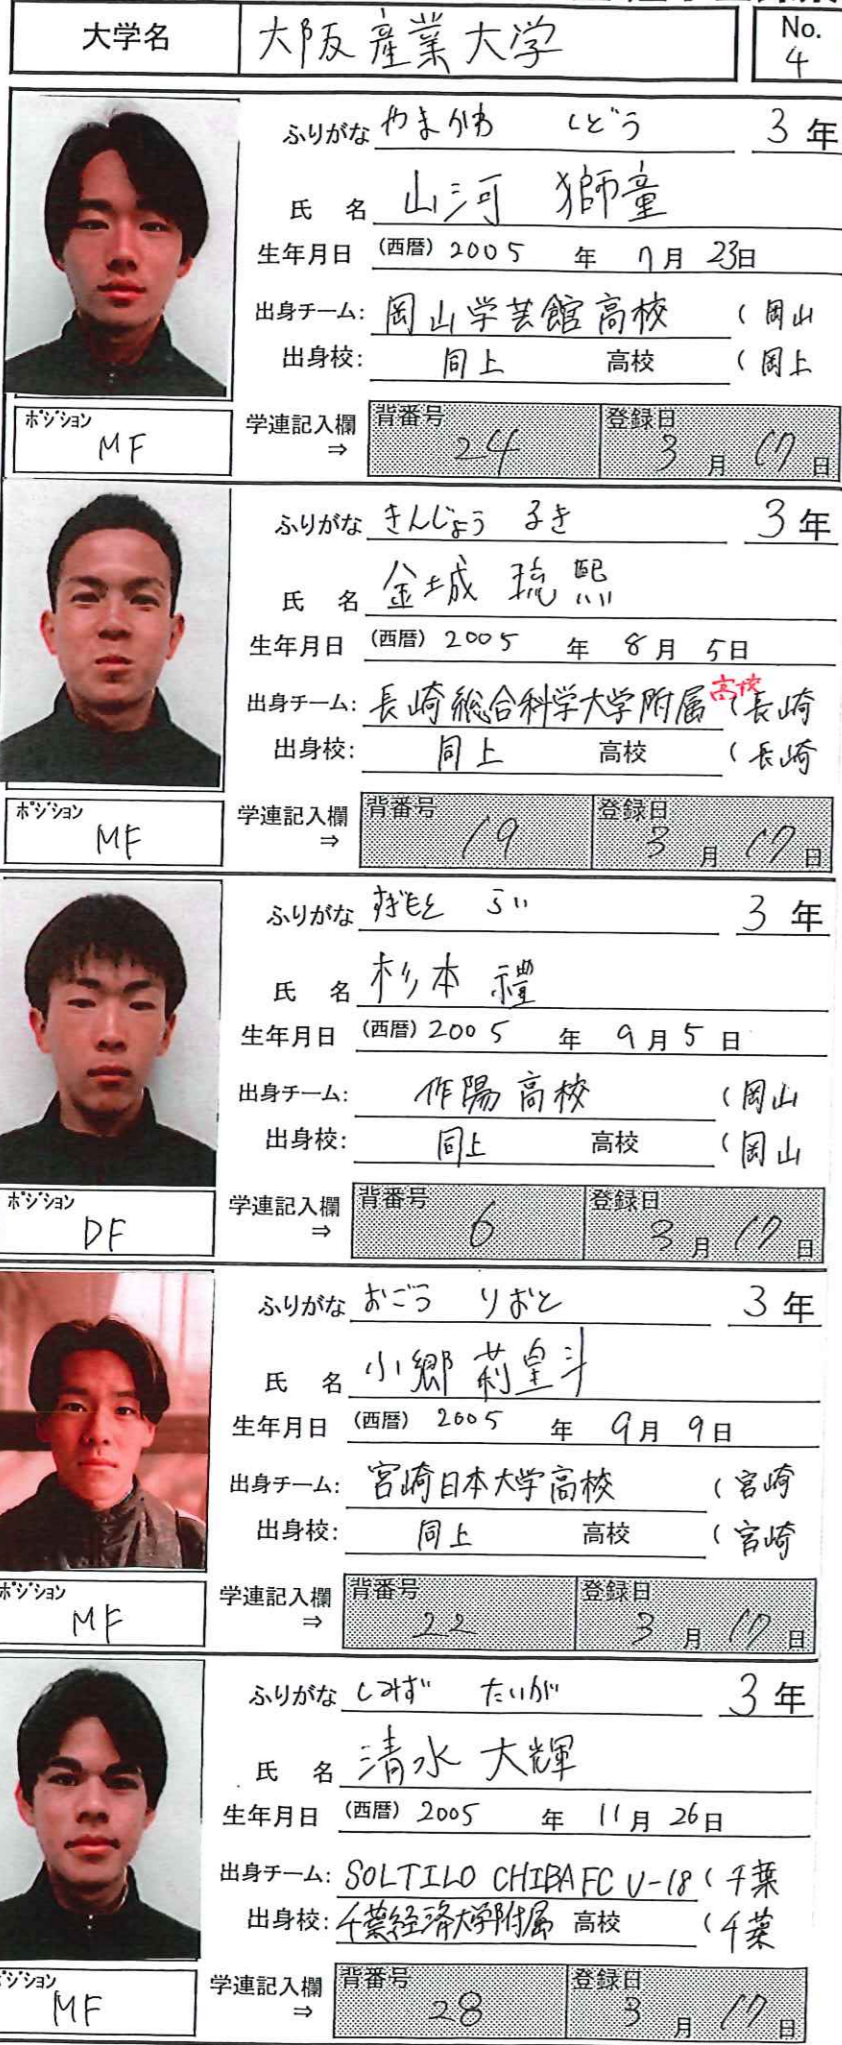 大学名 大阪産業大学 No. 4
ふりがな やまかわ しどう 3年
氏 名 山河 獅童
生年月日 (西暦) 2005 年 7月 23日
出身チーム: 岡山学芸館高校 (岡山
出身校: 同上 高校 (岡上
ポジション MF 学連記入欄 ⇒ 背番号 24 登録日 3月 17日
ふりがな きんじょう るき 3年
氏 名 金城 琉熙
生年月日 (西暦) 2005 年 8月 5日
出身チーム: 長崎総合科学大学附属高校 (長崎
出身校: 同上 高校 (長崎
ポジション MF 学連記入欄 ⇒ 背番号 19 登録日 3月 17日
ふりがな すぎもと らい 3年
氏 名 杉本 禮
生年月日 (西暦) 2005 年 9月 5日
出身チーム: 作陽高校 (岡山
出身校: 同上 高校 (岡山
ポジション DF 学連記入欄 ⇒ 背番号 6 登録日 3月 17日
ふりがな おごう りおと 3年
氏 名 小郷 莉皇斗
生年月日 (西暦) 2005 年 9月 9日
出身チーム: 宮崎日本大学高校 (宮崎
出身校: 同上 高校 (宮崎
ポジション MF 学連記入欄 ⇒ 背番号 22 登録日 3月 17日
ふりがな しみず たいが 3年
氏 名 清水 大輝
生年月日 (西暦) 2005 年 11月 26日
出身チーム: SOLTILO CHIBA FC U-18 (千葉
出身校: 千葉経済大学附属 高校 (千葉
ポジション MF 学連記入欄 ⇒ 背番号 28 登録日 3月 17日